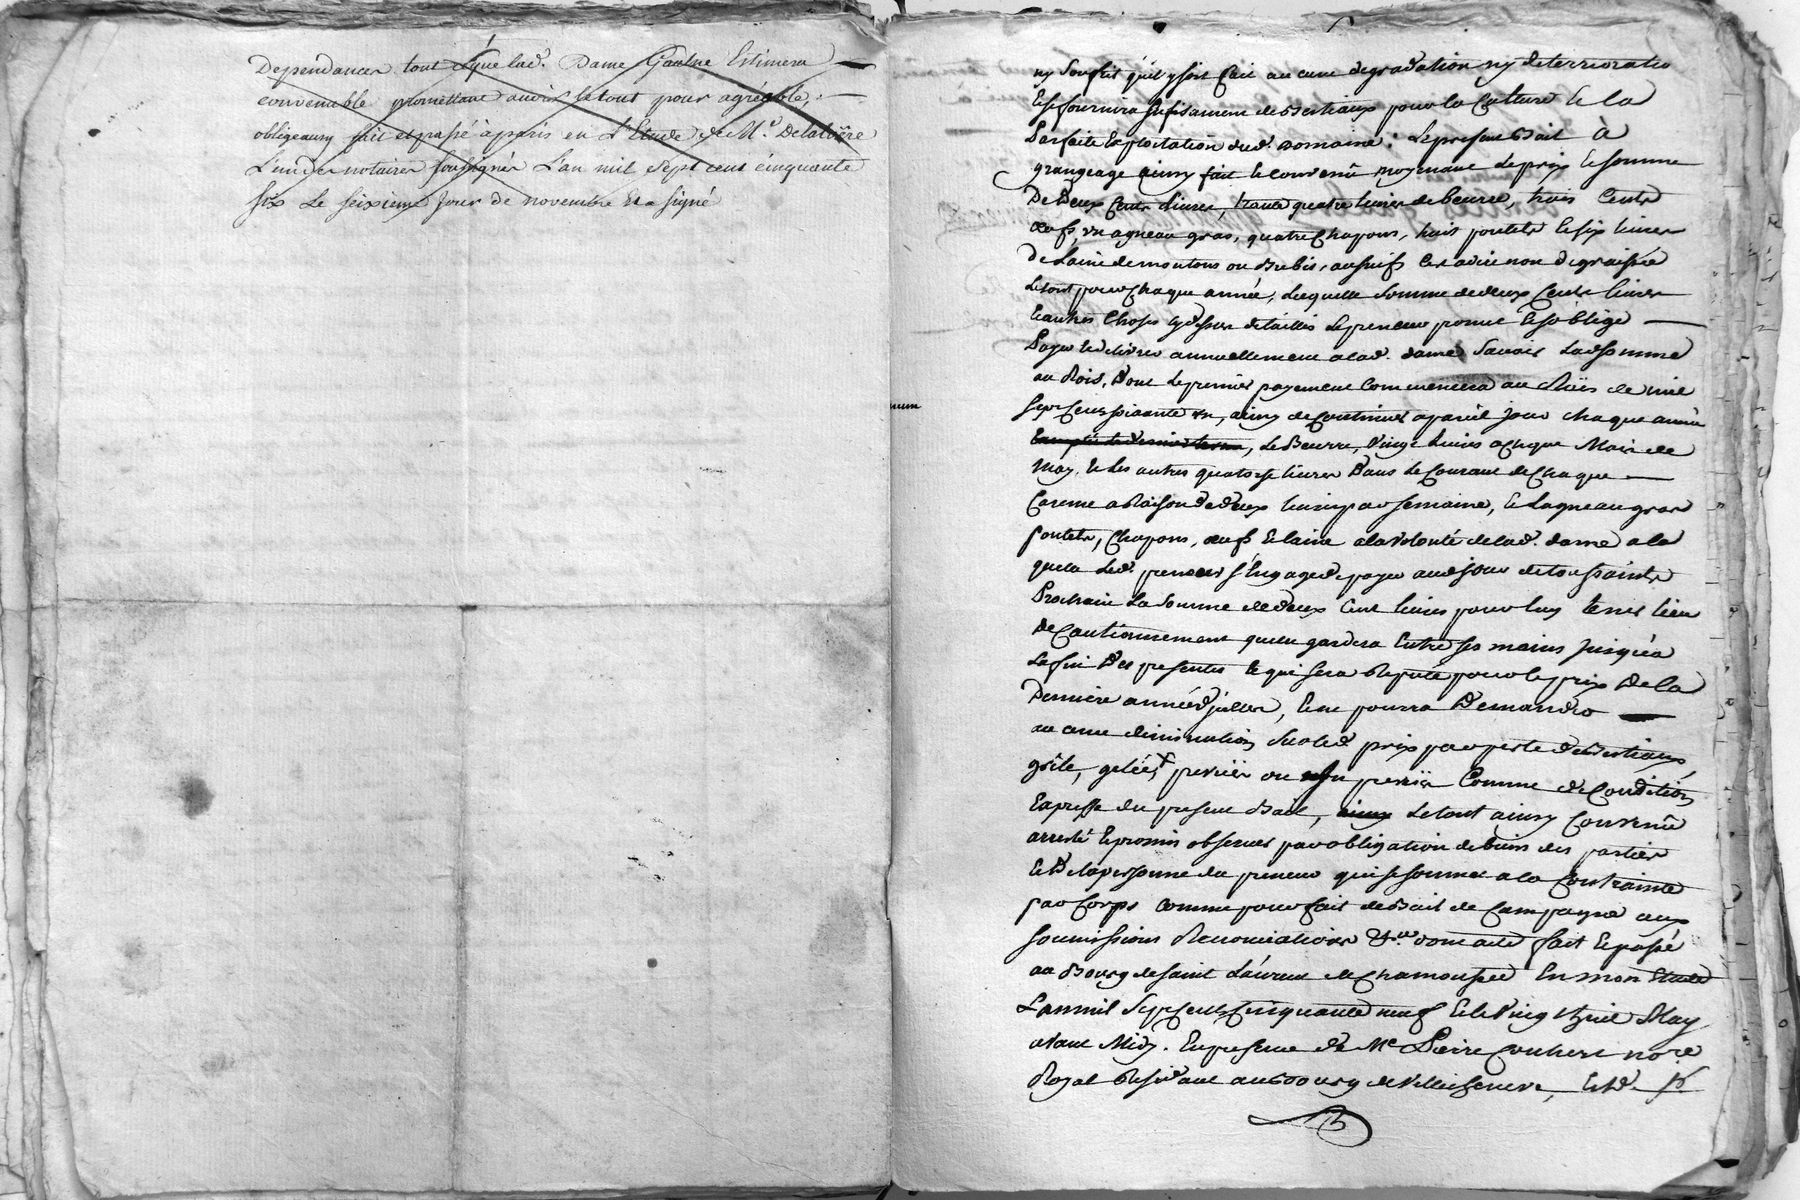 Dependances tout ce que lad. Dame Gaulne Estimera
convenable promettant avoir le tout pour agréable,
obligeang fait et passé à paris en L'Etude de Me. Delaloëre
L'un des notaires soussignés L'an mil sept cent cinquante
six Le seizieme jour de novembre Et a signé
ny soufrir quil y soit fait aucune degradation ny deterrioratio
Et fournira sufisament de Bestiaux pour la Culture Et la
Parfaite Exploitation dud. Domaine; Le present Bail à
grangeage ainsy fait Et convenû moyenant Le prix Et somme
De Deux Cents Livres, trante quatre livres de beurre, trois Cents
œufs, un agneau gras, quatre Chapons, huit poulets Et six livres
De Laine de moutons ou Brebis, au suif Cest a dire non degraissée
Le tout pour Chaque année, Lesquelle somme de deux Cents livres
Et autres Choses cy dessus detaillés Le preneur promet Et soblige
Payer Et delivrer annuellement a lad. dame Savoir Lad somme
au Rois, Dont Le premier payement Commencera au Rois de mil
Sept Cent soixante un, ainsy de Continuer a pareil jour chaque année
Le Beurre, Vingt Livres a Chaque Mois de
May, Et Les autres quatorze livres Dans Le Courant de Chaque
Careme a Raison de deux livres par semaine, Et Lagneau gras
poulets, Chapons, œufs Et laine a la Volonté de lad. dame a la
quelle Led. preneur s'Engage de payer aud jour de toussaints
Prochain La Somme de deux Cent livres pour luy tenir lieu
De Cautionnement quelle gardera Entre ses mains Jusqu'à
La fin Des presentes Et qui sera Reputé pour le prix De la
Derniere année d'jcelles, Et ne pourra Demander
aucune diminution Sur led prix par perte de Bestiaux,
grêle, gelée, prevüe ou non prevüe Comme de Condition
Expresse du present Bail, Le tout ainsy Convenû
arresté Et promis observer par obligation de biens des parties
Et De la personne du preneur qui se soumet a la Contrainte
par Corps comme pour fait de Bail de Campagne aux
soumissions Renonciations &a. dont acte fait Et passé
au Bourg de saint Laurent de Chamousset En mon Etude
L'an mil Sept Cent Cinquante neuf Et le Vingt huit May
avant Midy. En presence de Me Pierre Couhert nore
Royal Residant au Bourg de Villechenere, Et D.